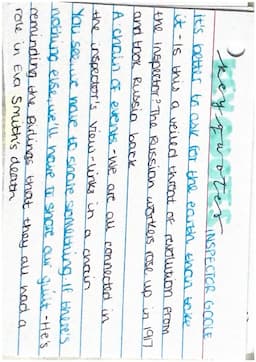 key quotes
INSPECTOR GOOLE
It's better to ask for the earth than take
it - Is this a veiled threat of revolution from
the inspector? The Russian workers rose up in 1917
and took Russia back
A chain of events - We are all connected in
the inspector's view - links in a chain
You see we have to share something. If there's
nothing else, we'll have to share our guilt - He's
reminding the Birlings that they all had a
role in Eva Smith's death